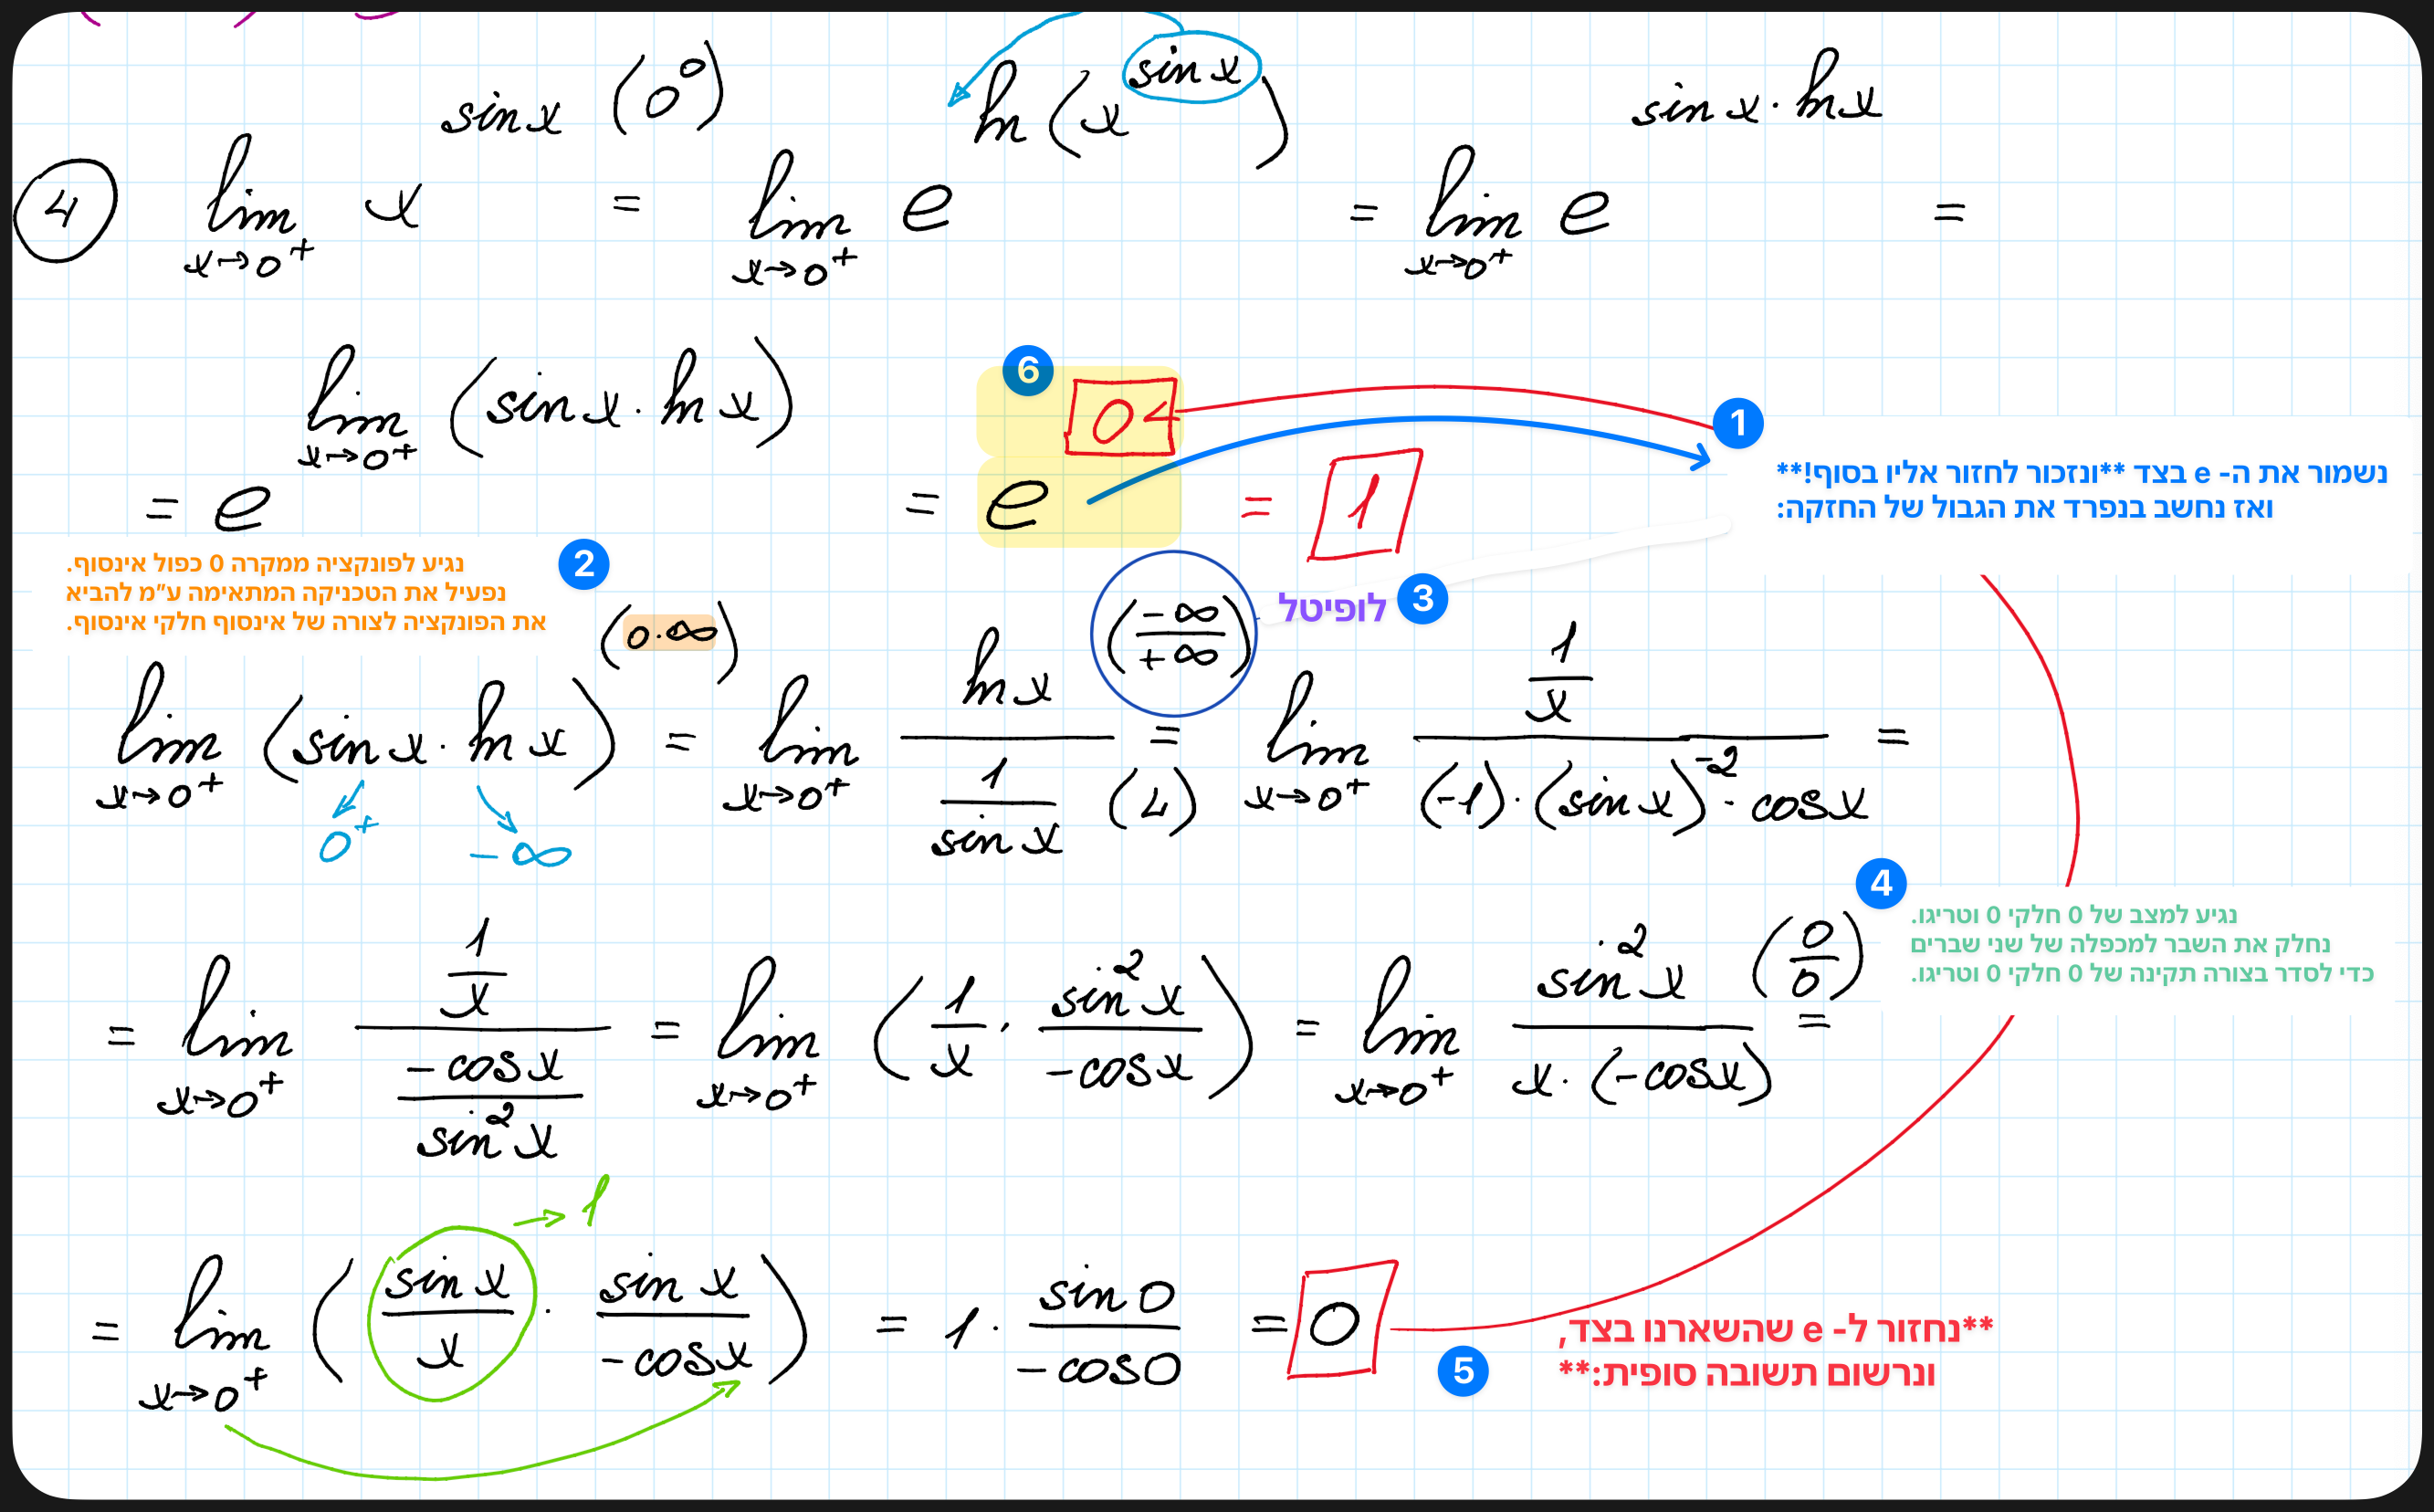 ④ lim x→0⁺ x^(sin x) (0⁰) = lim x→0⁺ e^(ln(x^(sin x))) = lim x→0⁺ e^(sin x · ln x) =
= e^(lim x→0⁺ (sin x · ln x)) = e^0 = 1
6
1
נשמור את ה- e בצד **ונזכור לחזור אליו בסוף!**
ואז נחשב בנפרד את הגבול של החזקה:
2
נגיע לפונקציה ממקרה 0 כפול אינסוף.
נפעיל את הטכניקה המתאימה ע"מ להביא
את הפונקציה לצורה של אינסוף חלקי אינסוף.
3
לופיטל
lim x→0⁺ (sin x · ln x) (0·∞) = lim x→0⁺ (ln x)/(1/(sin x)) (-∞/+∞) =(L) lim x→0⁺ (1/x)/((-1)·(sin x)^-2 · cos x) =
0⁺ -∞
4
נגיע למצב של 0 חלקי 0 וטריגו.
נחלק את השבר למכפלה של שני שברים
כדי לסדר בצורה תקינה של 0 חלקי 0 וטריגו.
= lim x→0⁺ (1/x)/((-cos x)/(sin² x)) = lim x→0⁺ (1/x · (sin² x)/(-cos x)) = lim x→0⁺ (sin² x)/(x·(-cos x)) (0/0) =
→ 1
= lim x→0⁺ ((sin x)/x · (sin x)/(-cos x)) = 1 · (sin 0)/(-cos 0) = 0
5
**נחזור ל- e שהשארנו בצד,
ונרשום תשובה סופית:**